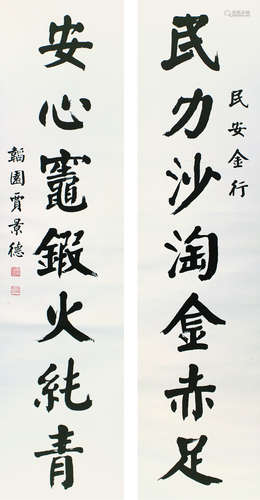 民安金行
民力沙淘金赤足
安心竈鍛火純青
韜園賈景德